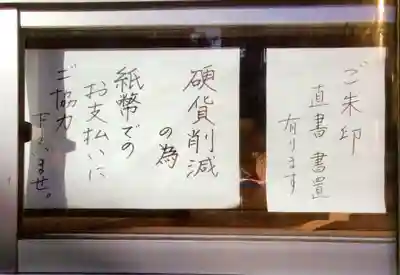 ご朱印
直書 書置
有ります
硬貨削減
の為
紙幣での
お支払いに
ご協力
下さいませ。